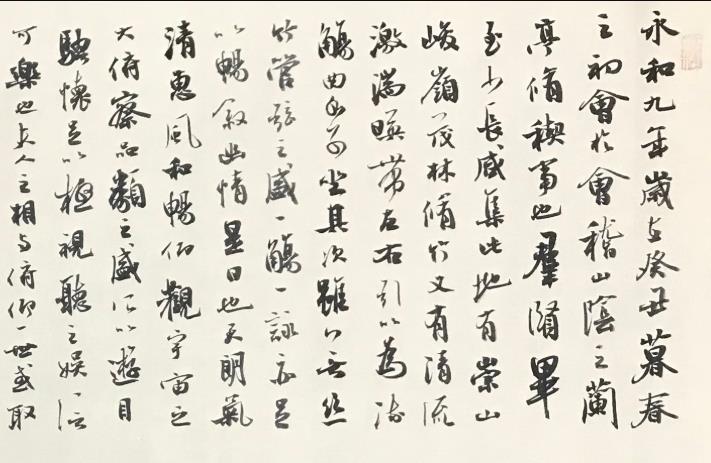 永和九年歲在癸丑暮春
之初會於會稽山陰之蘭
亭脩禊事也羣賢畢
至少長咸集此地有崇山
峻嶺茂林脩竹又有清流
激湍暎帶左右引以為流
觴曲水列坐其次雖無絲
竹管弦之盛一觴一詠亦足
以暢敘幽情是日也天朗氣
清惠風和暢仰觀宇宙之
大俯察品類之盛所以遊目
騁懷足以極視聽之娛信
可樂也夫人之相與俯仰一世或取